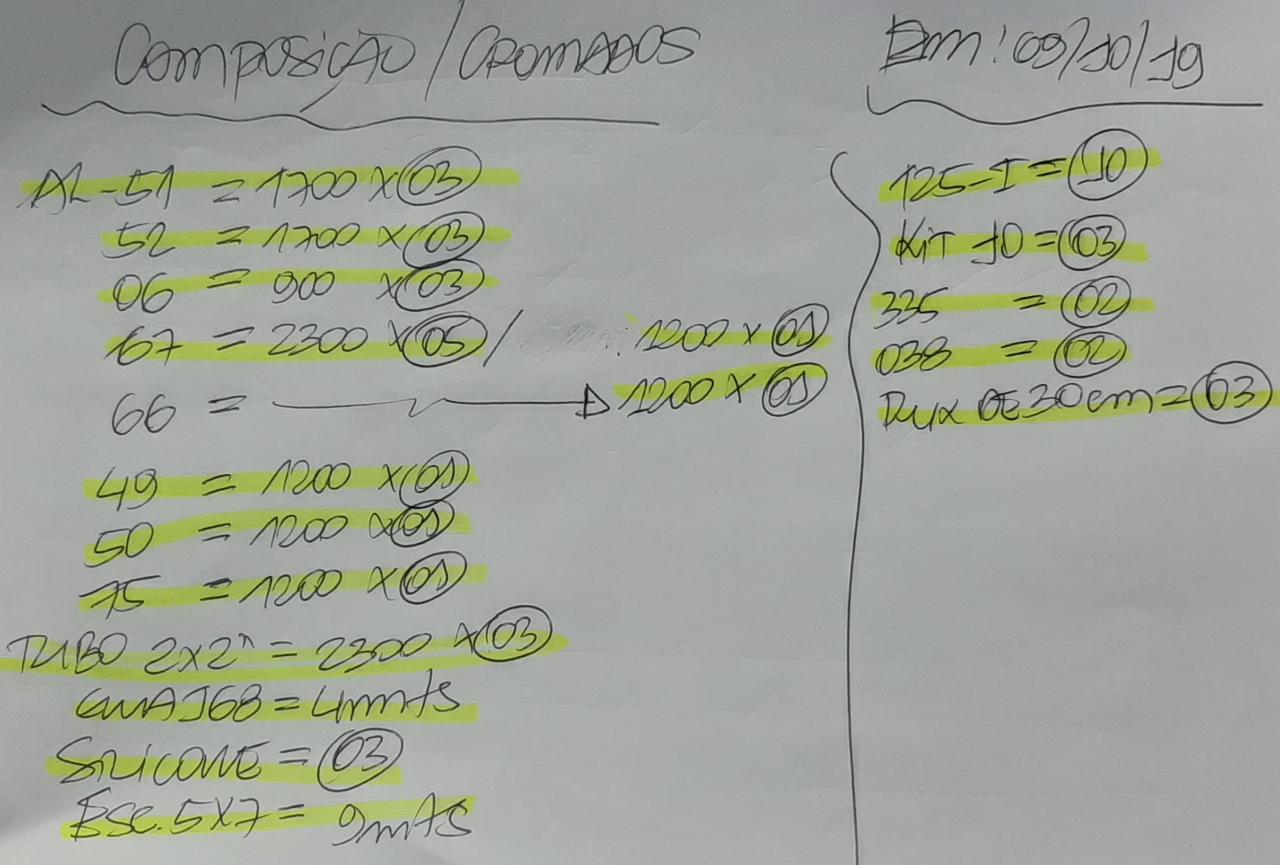 COMPOSIÇÃO / CROMADOS
Em: 09/10/19
AL-51 = 1700 x 03
52 = 1700 x 03
06 = 900 x 03
67 = 2300 x 05 / 1200 x 01
66 = 1200 x 01
49 = 1200 x 01
50 = 1200 x 01
75 = 1200 x 01
TUBO 2x2" = 2300 x 03
GUA 168 = 4mts
SILICONE = 03
ESC. 5x7 = 9mts
125-I = 10
KIT 10 = 03
335 = 02
038 = 02
DE 30cm = 03